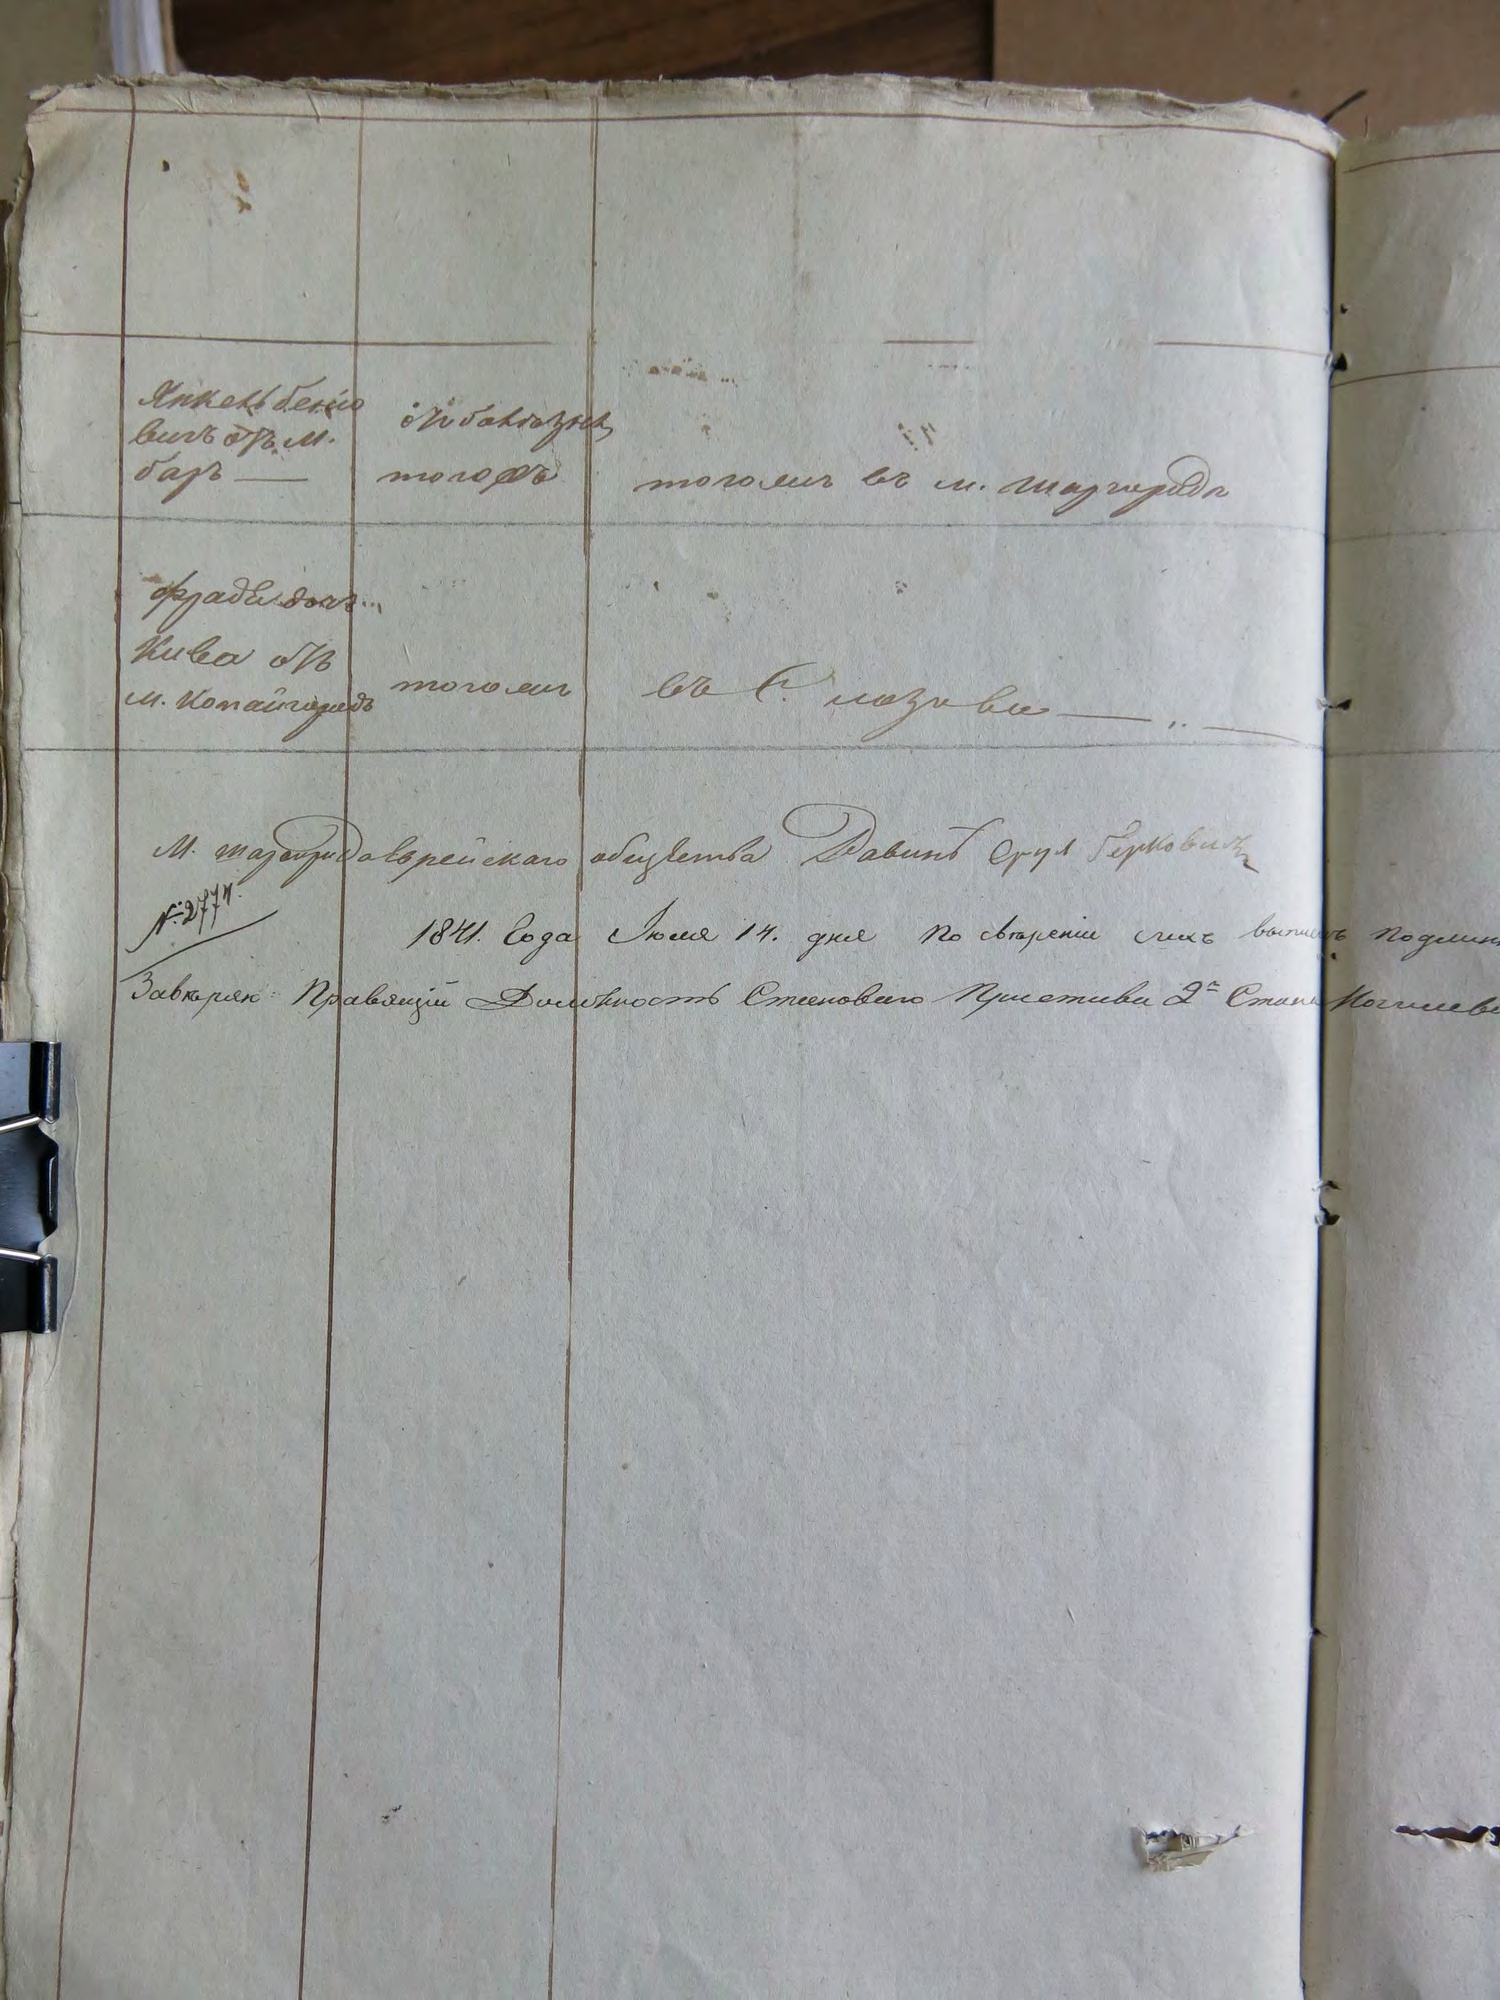 Янкель бенио
вичъ отъ м.
баръ —
тогожъ
тогоже въ м. Шаргородѣ
фрада дочь
Кива отъ
м. Копайгородъ
тогоже
въ С.
М. Шаргорода Еврейскаго общества Равинъ Срул Герковичъ
№ 2774.
1841. Года Июля 14. дня По свѣреніи сихъ
Завѣряю: Правящій Должность Становаго Пристава 2го Стана Могилев